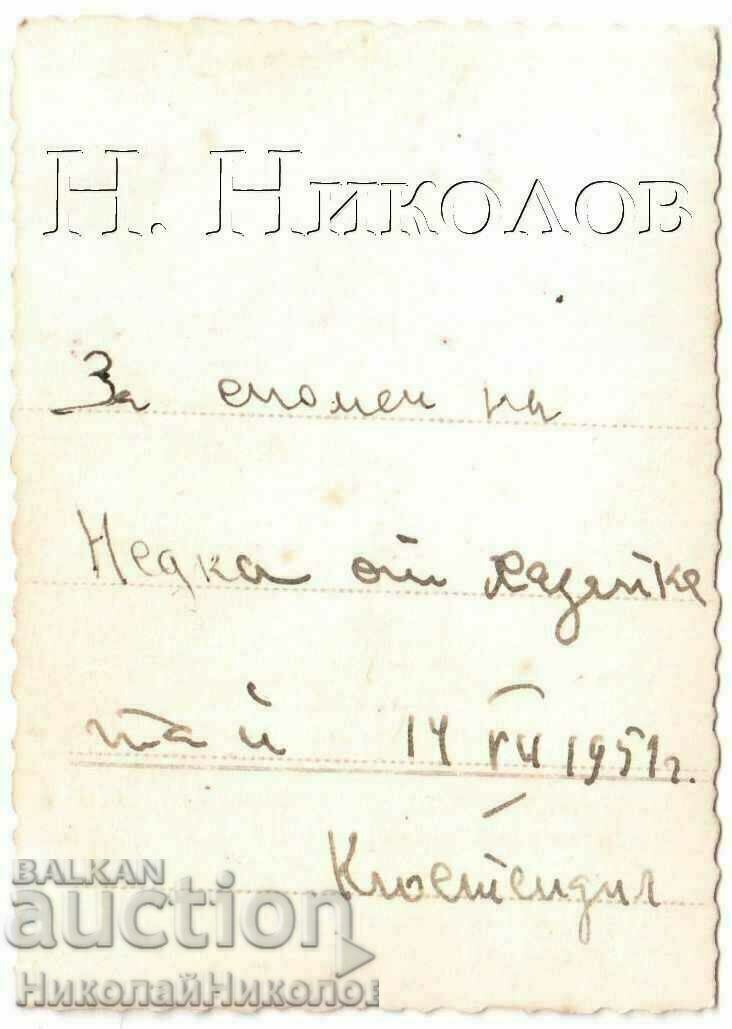 Н. Николов
За спомен на
Недка от
14 VII 1951г.
Кюстендил
BALKAN
auction
НиколайНиколов